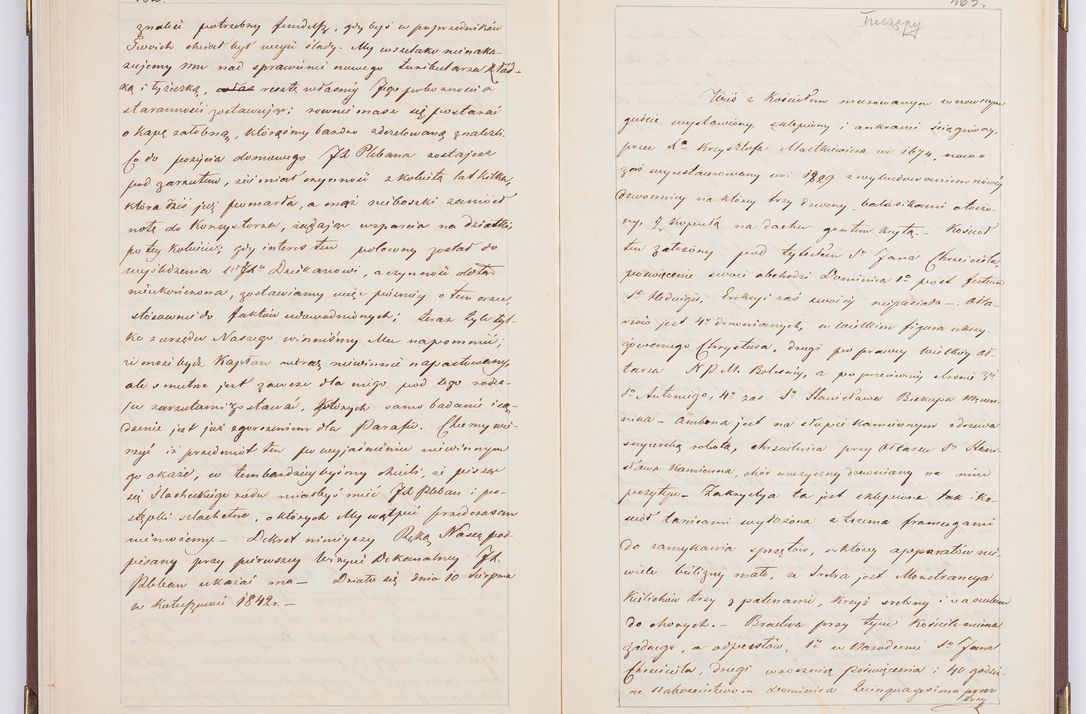 162.
znaleść potrzebny fundusz, gdy być w poprzedników
Swoich chciał był wejść ślady. My wszelako nienaka-
zujemy mu nad sprawienie nowego turibularza z łód-
ką i łyżeczką, resztę własnéj Jego pobożności a
staranności zostawując; równie masz się postarać
o kapę żałobną, którąśmy bardzo zdezelowaną znaleźli.
Co do pożycia domowego JX Plebana zostajesz
pod zarzutem, że miał czynność z kobiétą lat kilka,
która dziś już pomarła, a mąż nieboszki zaniósł
notę do Konsystorza, żądając wsparcia na dziatki
po téy kobiécie; gdy interes ten polecony został do
wyśledzenia Dziekanowi, a czynność dotąd
nieukończona, zostawiamy więc późniéy o tem orzec,
stósownie do faktów udowodnionych; teraz tyle tyl-
ko z urzędu Naszego winniśmy Mu napomnieć,
iż może być Kapłan nieraz niewinnie napastowany,
ale smutno jest zawsze dla niego pod tego rodza-
ju zarzutami zostawać, których samo badanie i są-
dzenie jest już zgorszeniem dla Parafii. Chcemy wie-
rzyć iż przedmiot ten po wyjaśnieniu niewinnym
go okaże, co tembardziéy byśmy chcieli, że pisząc
się Szlacheckiego rodu miałbyś mieć JX Pleban i po-
stępki szlachetne, o których My wątpić przedczasem
niemożemy — Dekret niniéyszy Ręką Naszą pod-
pisany przy pierwszéy Wizycie Dekanalnéy JX
Pleban okazać ma — Działo się dnia 10 Sierpnia
w Kotuszowie 1842 r. —
163.
Tuczępy
Wieś z Kościołem murowanym w nowszym
guście wystawiony, sklepiony i ankrami ściągniony,
przez Xa Krzysztofa Mastkiewicza w r. 1674, nowo
zaś wyrestaurowany w r. 1829 z wybudowaniem nowéj
Dzwonnicy na któréy trzy dzwony, balasikami otoczo-
ny, z kopułą na dachu gontem kryta. — Kościół
ten założony pod tytułem Sgo Jana Chrzciciela,
poświęcenie swoie obchodzi Dominica 1a post festum
Sae Hedvigis, Erekcyi zaś swoiéj nieposiada. — Ołta-
rzów jest 4y drewnianych, w wielkim figura ukrzy-
żowanego Chrystusa, drugi po prawéy wielkiego oł-
tarza N.P.M. Bolesnéy, a po przeciwnéy stronie 3ci
Sgo Antoniego, 4y zaś Sgo Stanisława Biskupa Męczen-
nika — Ambona jest na słupie kamiennym z drzewa
snycerską robotą, chrzcielnica przy Ołtarzu Sgo Stani-
sława kamienna, chór muzyczny drewniany na nim
pozytyw. — Zakrystya ta jest sklepiona tak i ko-
ściół tarcicami wyłożona z trzema framugami
do zamykania sprzętów, w któréy apparatów nie-
wiele bielizny mało, ze srebra jest Monstrancya
Kielichów trzy z patenami, krzyż srebrny i vasculum
do chorych. — Bractwa przy tym Kościele niema
żadnego, a odpustów, 1y w Narodzenie Sgo Jana
Chrzciciela, drugi w rocznicę poświęcenia i 40 godzin-
ne Nabożeństwo in dominica Quinquagesima przez
trzy